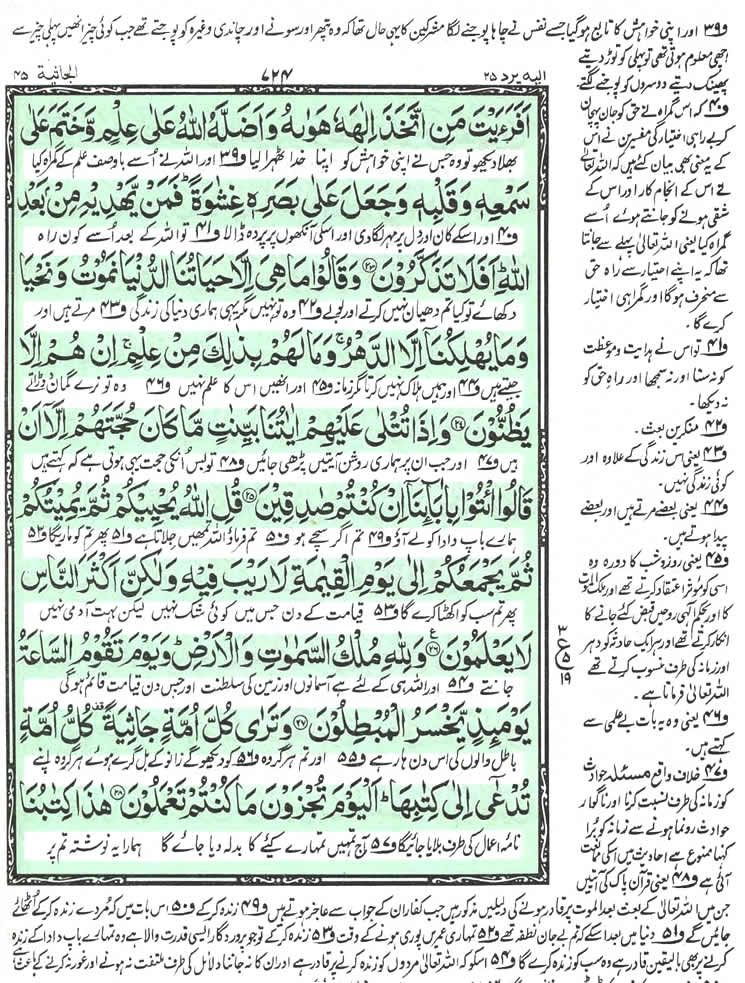 ف٣٩ اور اپنی خواہش کا تابع ہوگیا جسے نفس نے چاہا پوجنے لگا مشرکین کا یہی حال تھا کہ وہ پتھر اور سونے اور چاندی وغیرہ کو پوجتے تھے جب کوئی چیز انھیں پہلی چیز سے
اچھی معلوم ہوتی تھی تو پہلی کو توڑ دیتے
پھینک دیتے دوسروں کو پوجنے لگتے
الیہ یرد ٢٥
٧٢٤
الجاثیۃ ٤٥
اَفَرَءَیْتَ مَنِ اتَّخَذَ اِلٰهَهٗ هَوٰىهُ وَاَضَلَّهُ اللّٰهُ عَلٰى عِلْمٍ وَّخَتَمَ عَلٰى
بھلا دیکھو تو وہ جس نے اپنی خواہش کو اپنا خدا ٹھہرا لیا ف٣٩ اور اللہ نے اسے باوصف علم کے گمراہ کیا
سَمْعِهٖ وَقَلْبِهٖ وَجَعَلَ عَلٰى بَصَرِهٖ غِشٰوَةً ؕ فَمَنْ یَّهْدِیْهِ مِنْۢ بَعْدِ
ف٤٠ اور اسکے کان اور دل پر مہر لگادی اور اسکی آنکھوں پر پردہ ڈالا ف٤١ تو اللہ کے بعد اسے کون راہ
اللّٰهِ ؕ اَفَلَا تَذَكَّرُوْنَ ﴿٢٣﴾ وَقَالُوْا مَا هِیَ اِلَّا حَیَاتُنَا الدُّنْیَا نَمُوْتُ وَنَحْیَا
دکھائے تو کیا تم دھیان نہیں کرتے اور بولے ف٤٢ وہ تو نہیں مگر یہی ہماری دنیا کی زندگی ف٤٣ مرتے ہیں اور
وَمَا یُهْلِكُنَاۤ اِلَّا الدَّهْرُ ۚ وَمَا لَهُمْ بِذٰلِكَ مِنْ عِلْمٍ ۚ اِنْ هُمْ اِلَّا
جیتے ہیں ف٤٤ اور ہمیں ہلاک نہیں کرتا مگر زمانہ ف٤٥ اور انھیں اس کا علم نہیں ف٤٦ وہ تو نرے گمان دوڑاتے
یَظُنُّوْنَ ﴿٢٤﴾ وَاِذَا تُتْلٰى عَلَیْهِمْ اٰیٰتُنَا بَیِّنٰتٍ مَّا كَانَ حُجَّتَهُمْ اِلَّاۤ اَنْ
ہیں ف٤٧ اور جب ان پر ہماری روشن آیتیں پڑھی جائیں ف٤٨ تو بس انکی حجت یہی ہوتی ہے کہ کہتے ہیں
قَالُوا ائْتُوْا بِاٰبَآئِنَاۤ اِنْ كُنْتُمْ صٰدِقِیْنَ ﴿٢٥﴾ قُلِ اللّٰهُ یُحْیِیْكُمْ ثُمَّ یُمِیْتُكُمْ
ہمارے باپ دادا کو لے آؤ ف٤٩ تم اگر سچے ہو ف٥٠ تم فرماؤ اللہ تمھیں جلاتا ہے ف٥١ پھر تم کو ماریگا ف٥٢
ثُمَّ یَجْمَعُكُمْ اِلٰى یَوْمِ الْقِیٰمَةِ لَا رَیْبَ فِیْهِ وَلٰكِنَّ اَكْثَرَ النَّاسِ
پھر تم سب کو اکٹھا کرے گا ف٥٣ قیامت کے دن جس میں کوئی شک نہیں لیکن بہت آدمی نہیں
لَا یَعْلَمُوْنَ ﴿٢٦﴾ وَلِلّٰهِ مُلْكُ السَّمٰوٰتِ وَالْاَرْضِ ؕ وَیَوْمَ تَقُوْمُ السَّاعَةُ
جانتے ف٥٤ اور اللہ ہی کے لئے ہے آسمانوں اور زمین کی سلطنت اور جس دن قیامت قائم ہوگی
یَوْمَئِذٍ یَّخْسَرُ الْمُبْطِلُوْنَ ﴿٢٧﴾ وَتَرٰى كُلَّ اُمَّةٍ جَاثِیَةً ۫ كُلُّ اُمَّةٍ
باطل والوں کی اس دن ہار ہے ف٥٥ اور تم ہر گروہ ف٥٦ کو دیکھو گے زانو کے بل گرے ہوئے ہر گروہ اپنے
تُدْعٰۤى اِلٰى كِتٰبِهَا ؕ اَلْیَوْمَ تُجْزَوْنَ مَا كُنْتُمْ تَعْمَلُوْنَ ﴿٢٨﴾ هٰذَا كِتٰبُنَا
نامۂ اعمال کی طرف بلایا جائیگا ف٥٧ آج تمہیں تمہارے کیئے کا بدلہ دیا جائے گا ہمارا یہ نوشتہ تم پر
ع
٣
٥
١٩
ف٤٠ کہ اس گمراہ نے حق کو جان پہچان
کر بے راہی اختیار کی مفسرین نے اس
کے یہ معنی بھی بیان کئے ہیں کہ اللہ تعالٰی
نے اس کے انجام کار اور اس کے
شقی ہونے کو جانتے ہوئے اسے
گمراہ کیا یعنی اللہ تعالٰی پہلے سے جانتا
تھا کہ یہ اپنے اختیار سے راہ حق
سے منحرف ہوگا اور گمراہی اختیار
کرے گا۔
ف٤١ تو اس نے ہدایت و موعظت
کو نہ سنا اور نہ سمجھا اور راہ حق کو
نہ دیکھا۔
ف٤٢ منکرین بعث۔
ف٤٣ یعنی اس زندگی کے علاوہ اور
کوئی زندگی نہیں۔
ف٤٤ یعنی بعضے مرتے ہیں اور بعضے
پیدا ہوتے ہیں۔
ف٤٥ یعنی روز و شب کا دورہ وہ
اسی کو مؤثر اعتقاد کرتے تھے اور ملک الموت
کا اور بحکم الٰہی روحیں قبض کئے جانے کا
انکار کرتے تھے اور ہر ایک حادثہ کو دہر
اور زمانہ کی طرف منسوب کرتے تھے
اللہ تعالٰی فرماتا ہے۔
ف٤٦ یعنی وہ یہ بات بے علمی سے
کہتے ہیں۔
ف٤٧ خلاف واقع مسئلہ حوادث
کو زمانہ کی طرف نسبت کرنا اور ناگوار
حوادث رونما ہونے سے زمانہ کو برا
کہنا ممنوع ہے احادیث میں اسکی ممانعت
آئی ہے ف٤٨ یعنی قرآن پاک کی آیتیں
جن میں اللہ تعالٰی کے بعث بعد الموت پر قادر ہونے کی دلیلیں مذکور ہیں جب کفار ان کے جواب سے عاجز ہوتے ہیں ف٤٩ زندہ کر کے ف٥٠ اس بات میں کہ مُردے زندہ کر کے اٹھائے
جائیں گے ف٥١ دنیا میں بعد اسکے کہ تم بے جان نطفہ تھے ف٥٢ تمہاری عمریں پوری ہونے کے وقت ف٥٣ زندہ کر کے تو جو پروردگار ایسی قدرت والا ہے وہ تمہارے باپ دادا کے زندہ
کرنے پر بھی بالیقین قادر ہے وہ سب کو زندہ کرے گا ف٥٤ اسکو کہ اللہ تعالٰی مردوں کو زندہ کرنے پر قادر ہے اور ان کا نہ جاننا دلائل کی طرف ملتفت نہ ہونے اور غور نہ کرنے کے باعث